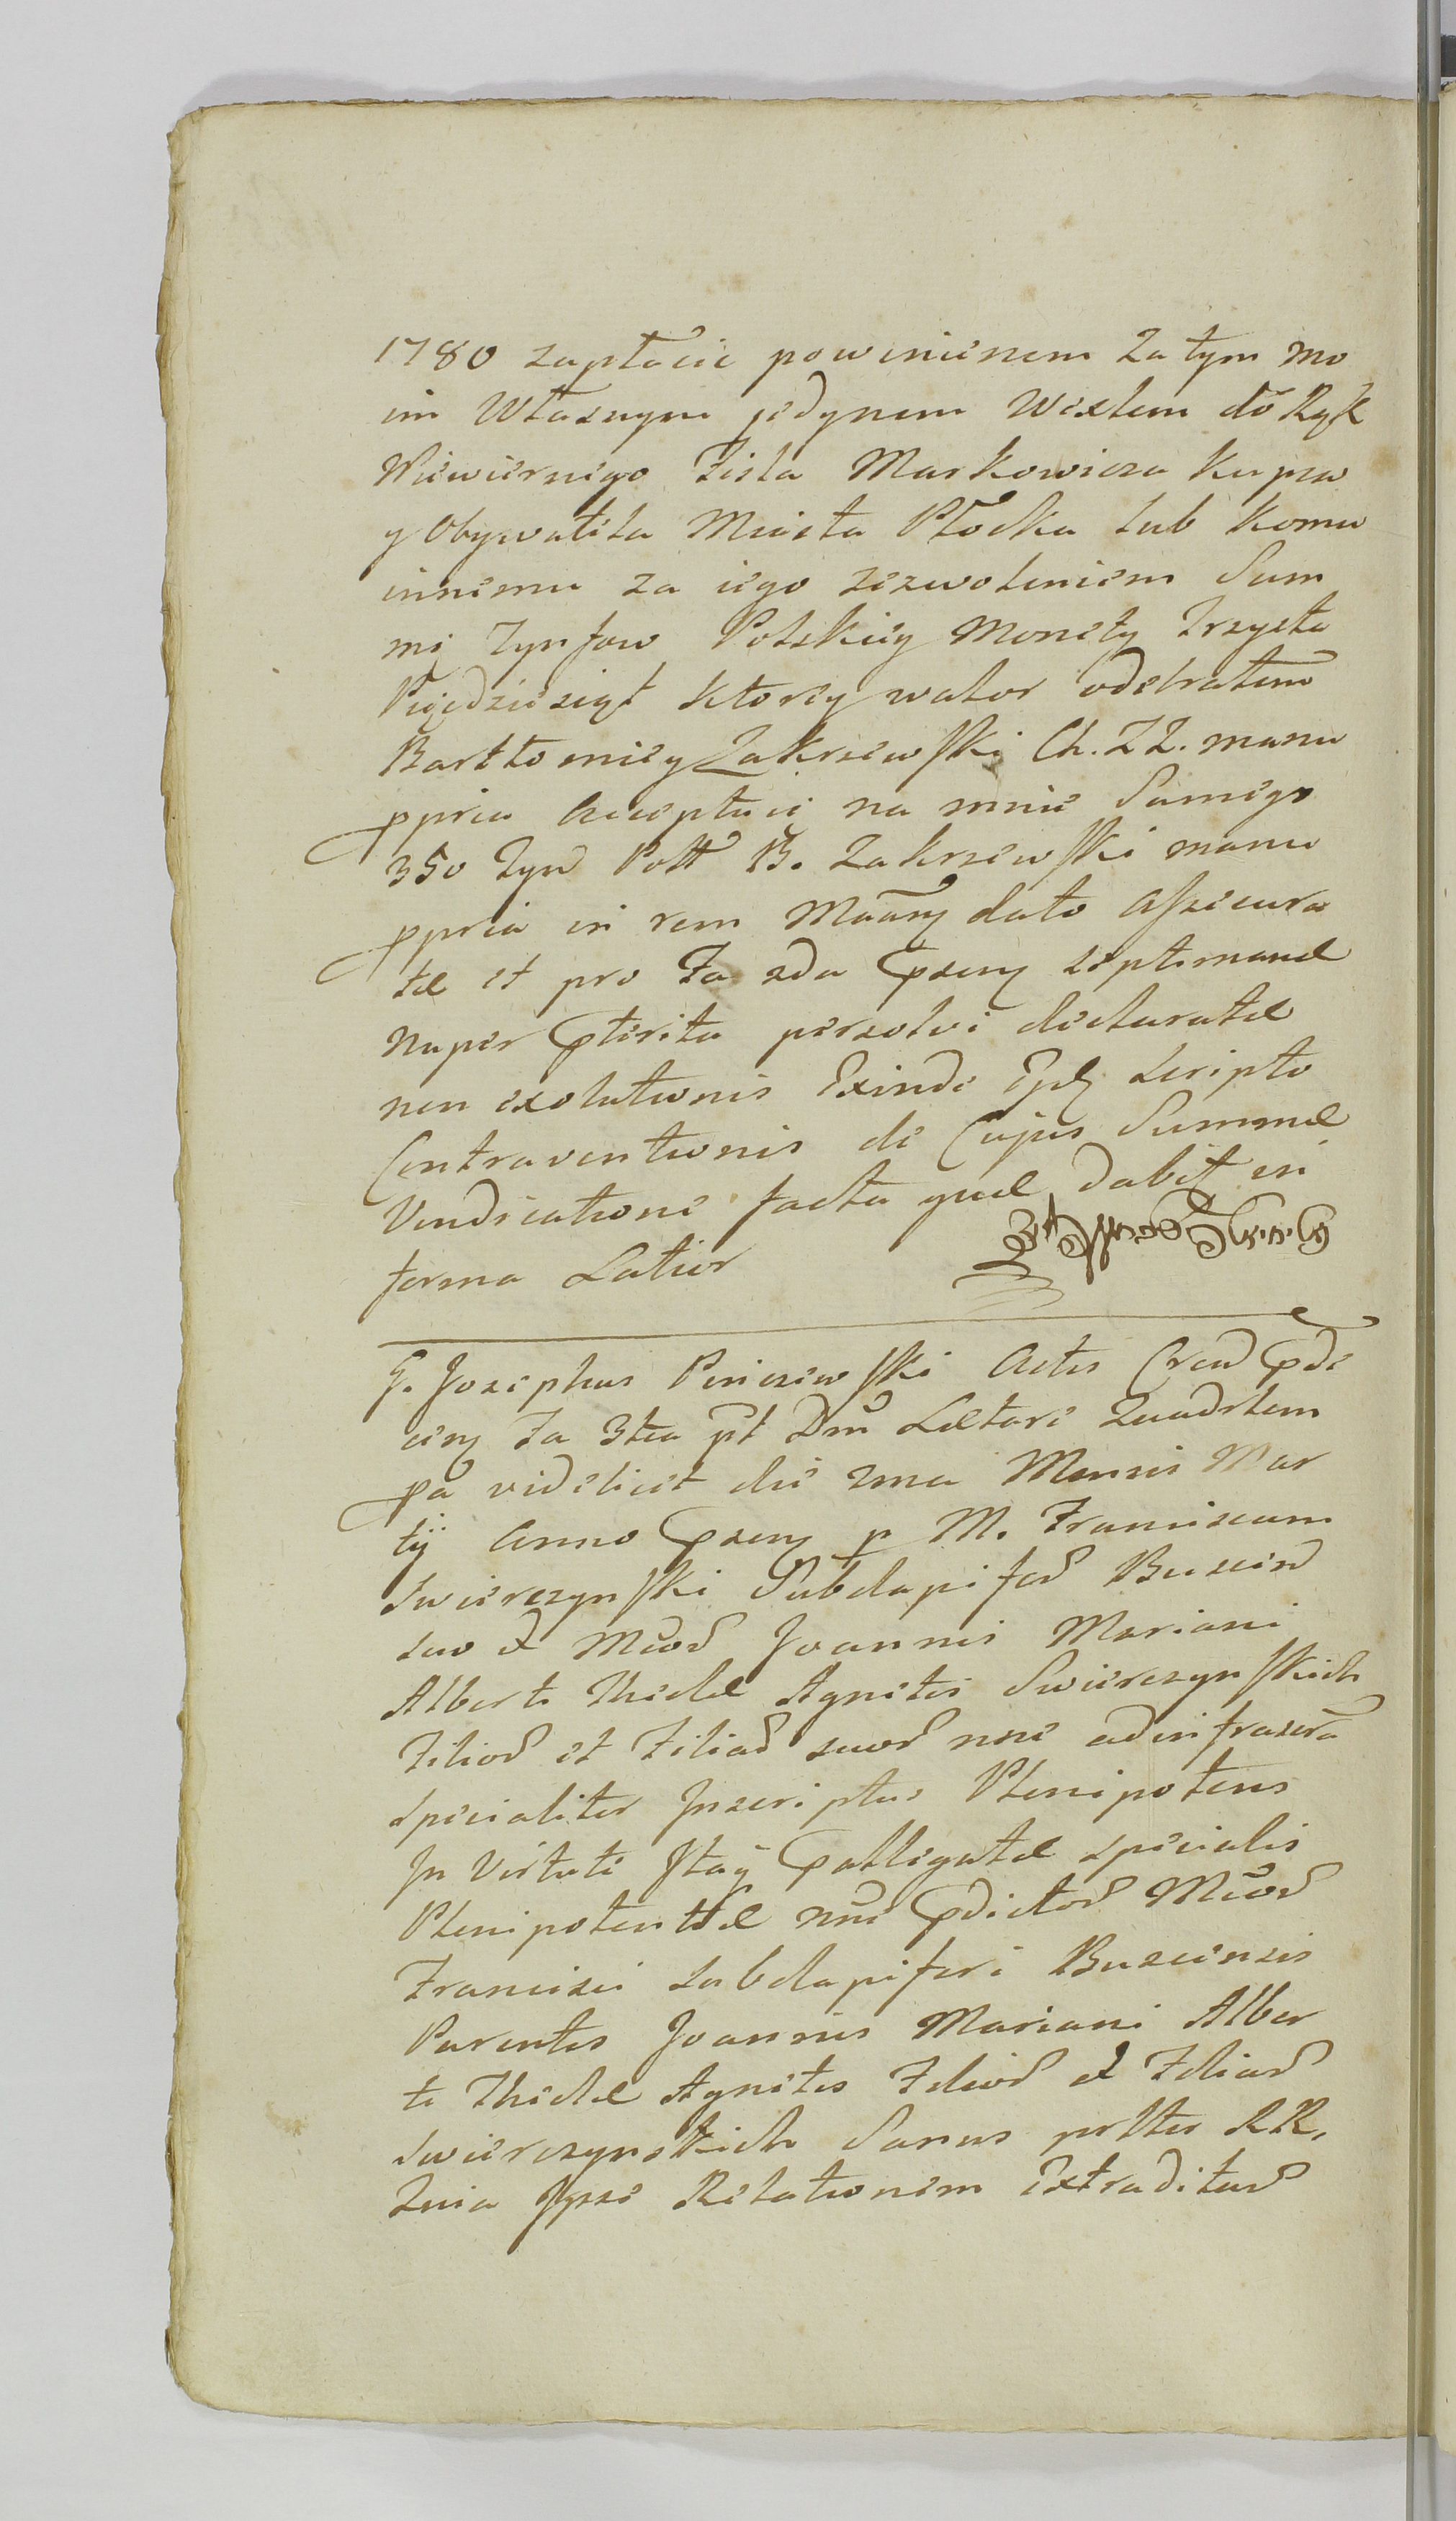 1780 zapłacic powinienem Za tym mo
im Własnym jedynem Wexlem do Rąk
Niewiernego Fisla Markowicza Kupca
y Obywatela Miasta Płocka lub komu
innemu za iego zezwoleniem Sum
mę Tynfow Polskiey Monety Trzysta
Pięcdziesiąt ktorey walor odebrałem
Bartłomiey Zakrzewski Ch. ZZ. manu
ppria Acceptuię na mnie Samego
350 Tyn Poll B. Zakrzewski manu
ppria in rem dato assecura
tæ et pro Fa 2da septimanæ
nuper pterita persolvi declaratæ
non exolutionis Exinde Scripto
Contraventionis de Cujus Summæ
Vendicatione facta quæ dabit in
forma Latior
G. Josephus Pniewski Actis pde
Fa 3tia pt Dm Lætare Quadrlem
pa videlicet die 2ma Mensis Mar
tij Anno p M. Franciscum
Swierczynski Subdapifer Buscin
suo et Joannis Mariani
Alberti Theclæ Agnetis Swierczynskich
Filior et Filiar suor nne ad infrascra
specialiter Inscriptus Plenipotens
In Virtute specialis
Plenipotentiæ pdictor
Francisci Subdapiferi Buscensis
Parentis Joannis Mariani Alber
ti Theclæ Agnetis Filior et Filiar
Swierczynskich Sanus RR.
Quia Ipse Relationem Extraditur